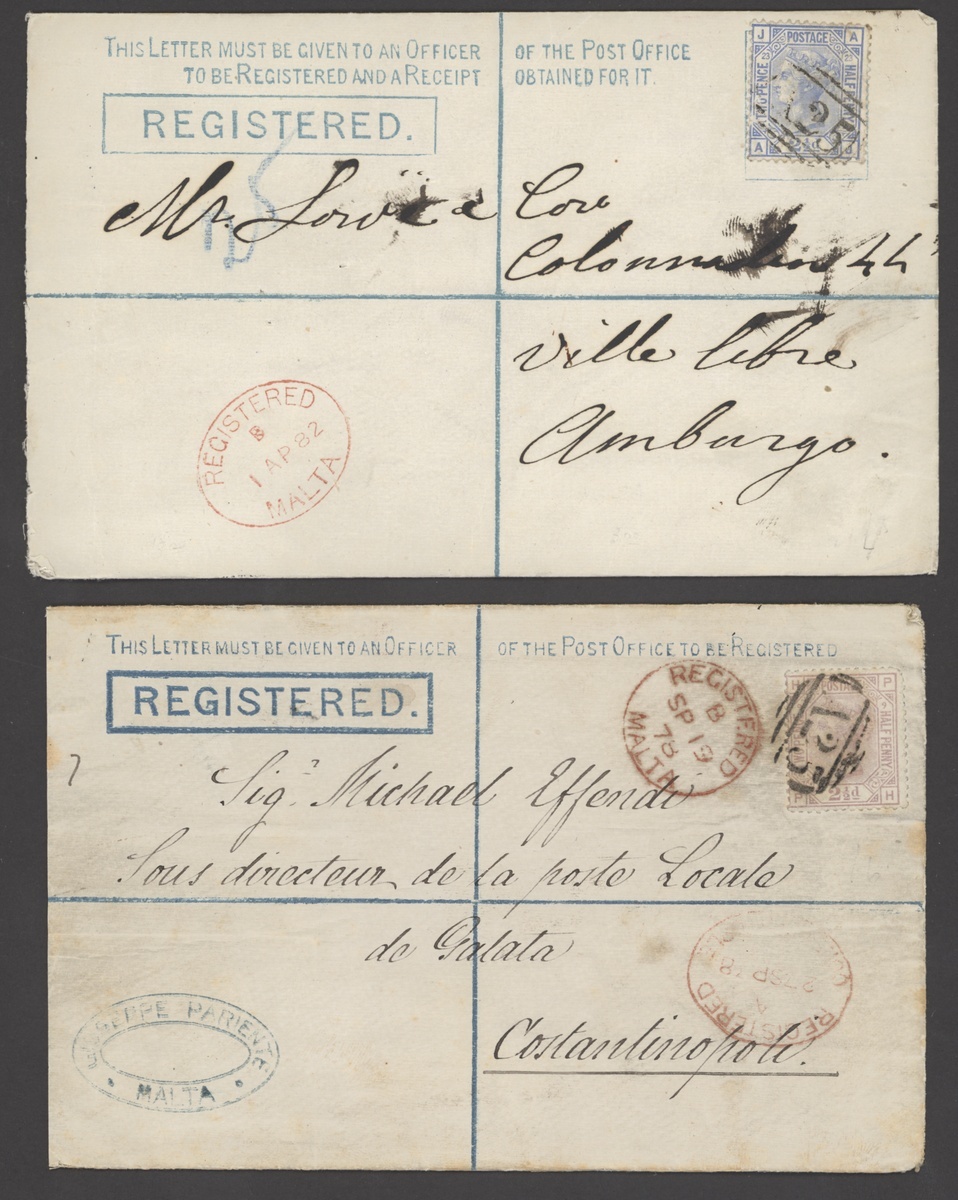 THIS LETTER MUST BE GIVEN TO AN OFFICER OF THE POST OFFICE
TO BE REGISTERED AND A RECEIPT OBTAINED FOR IT.
REGISTERED.
J POSTAGE A
TWO PENCE HALF PENNY
A 2½d J
25
Mr. Lowë & Co
Colonnaden 44
Ville libre
Amburgo.
REGISTERED
B
1 AP 82
MALTA
THIS LETTER MUST BE GIVEN TO AN OFFICER OF THE POST OFFICE TO BE REGISTERED
REGISTERED.
REGISTERED
B
SP 13
78
MALTA
H POSTAGE P
HALF PENNY
P 2½d H
A25
7
Sigr Michael Effendi
Sous directeur de la poste Locale
de Galata
Costantinopoli.
REGISTERED
27 SP 78
GIUSEPPE PARIENTE
MALTA